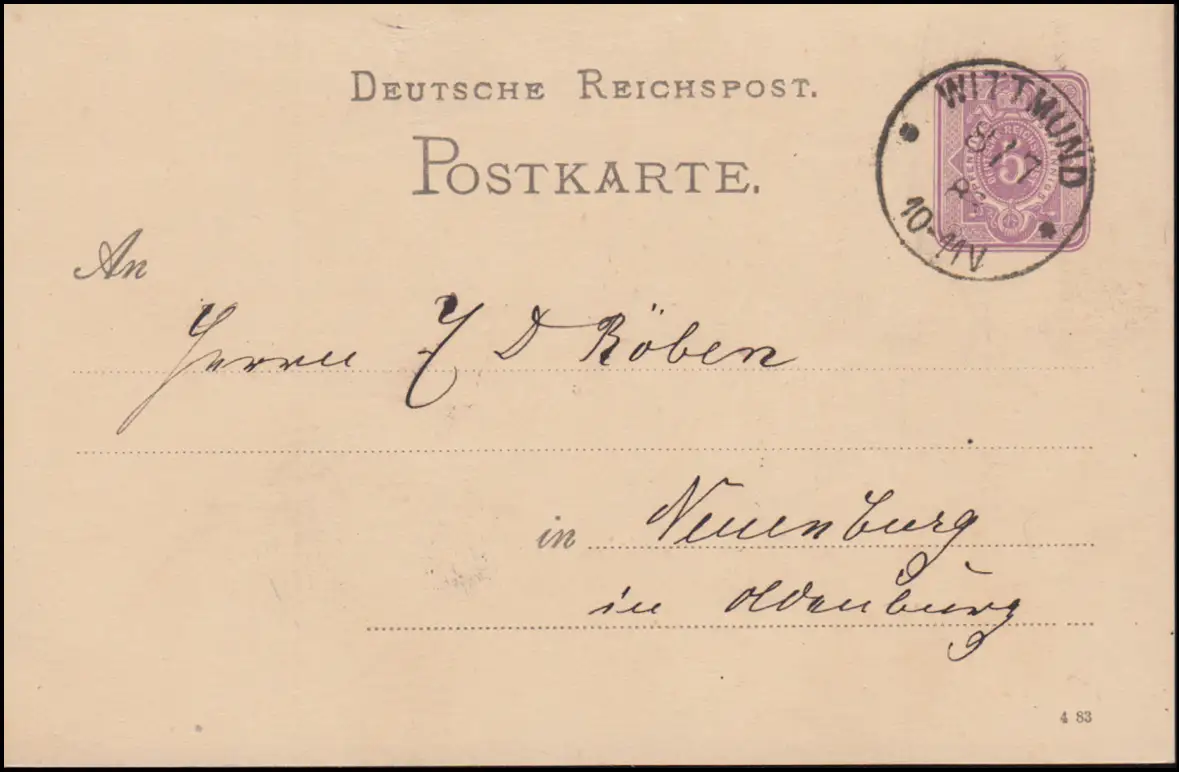 DEUTSCHE REICHSPOST.
POSTKARTE.
WITTMUND
8/7
10-11V
5
An
Herrn J D Röben
in Neuenburg
in Oldenburg
4 83